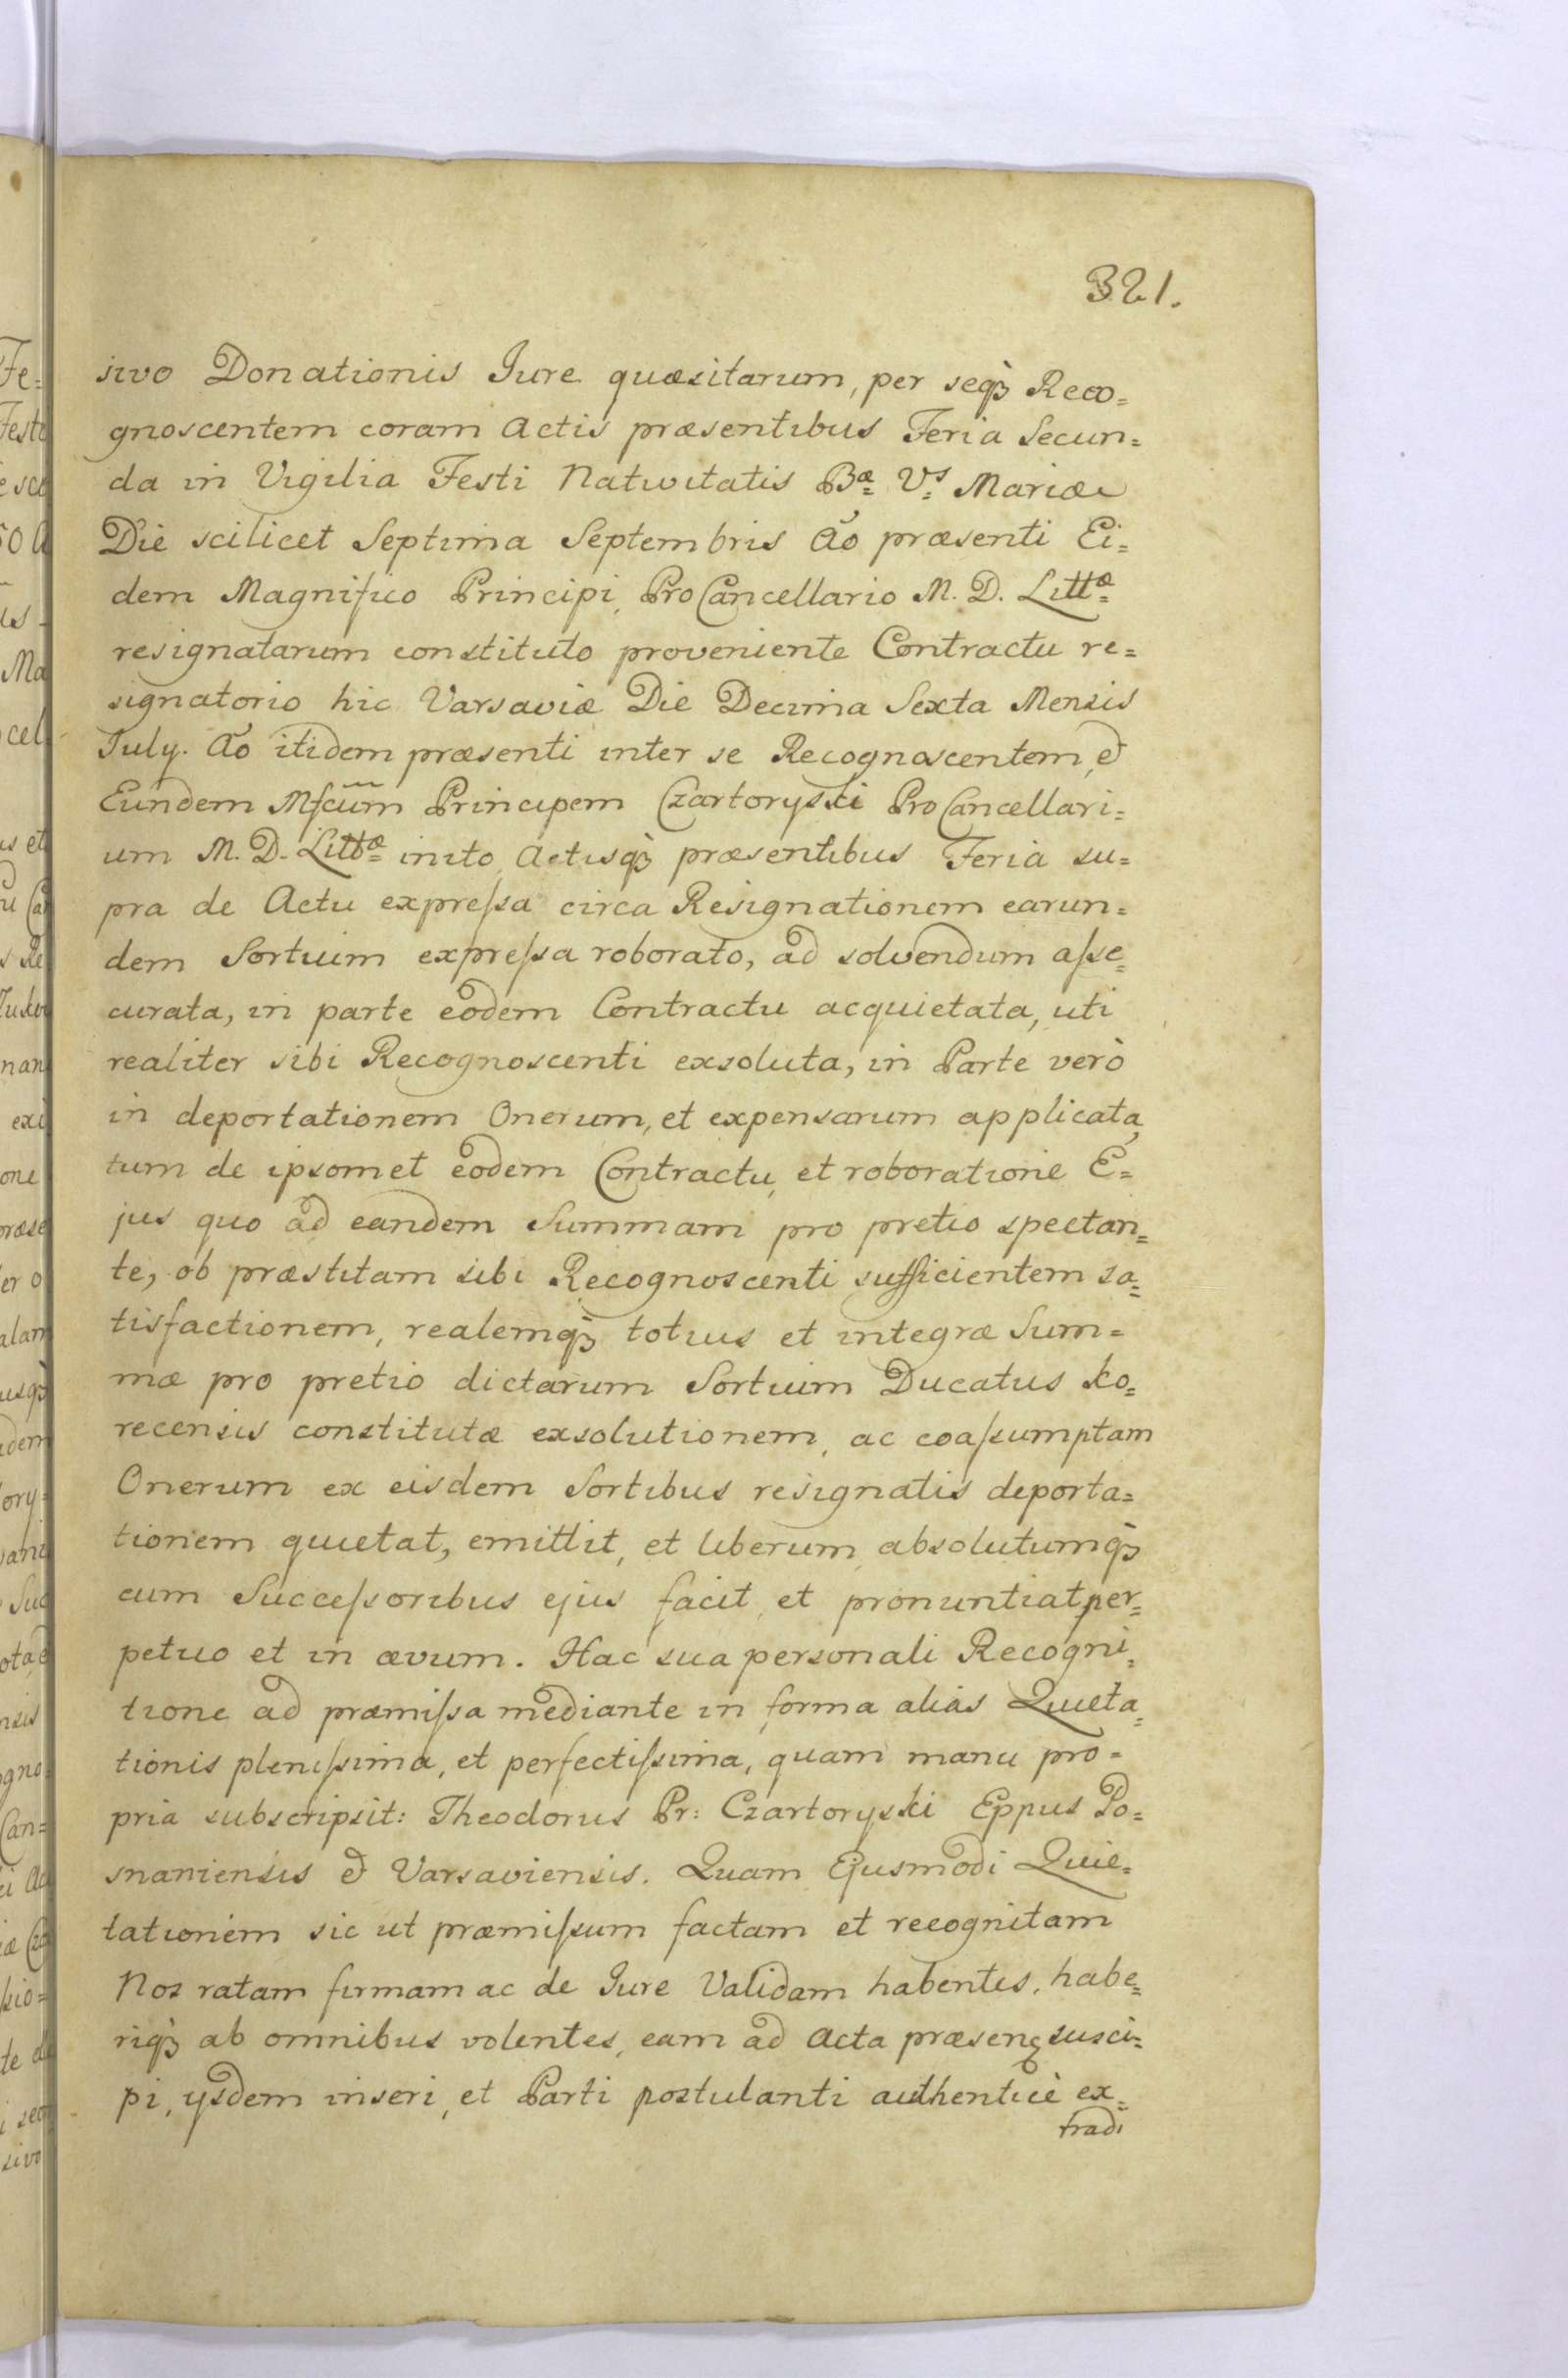 321.
sivo Donationis Jure quæsitarum, per seq̀ꝫ Reco=
gnoscentem coram Actis præsentibus Feria Secun=
da in Vigilia Festi Nativitatis Bæ Vs Mariæ
Die scilicet Septima Septembris Aõ præsenti Ei=
dem Magnifico Principi, ProCancellario M. D. Littæ
resignatarum constituto proveniente Contractu re=
signatorio hic Varsaviæ Die Decima Sexta Mensis
July. Aõ itidem præsenti inter se Recognoscentem, et
Eundem Mfcũm Principem Czartoryski ProCancellari=
um M. D. Littæ inito, Actisq̀ꝫ præsentibus Feria su=
pra de Actu expreſsa circa Resignationem earun=
dem Sortium expreſsa roborato, ad solvendum aſse=
curata, in parte eodem Contractu acquietata, uti
realiter sibi Recognoscenti exsoluta, in Parte verò
in deportationem Onerum, et expensarum applicata,
tum de ipsomet eodem Contractu, et roboratione E=
jus quo ad eandem Summam pro pretio spectan=
te, ob præstitam sibi Recognoscenti sufficientem sa=
tisfactionem, realemq̀ꝫ totius et integræ Sum=
mæ pro pretio dictarum Sortium Ducatus Ko=
recensis constitutæ exsolutionem, ac coaſsumptam
Onerum ex eisdem Sortibus resignatis deporta=
tionem quietat, emittit, et liberum, absolutumq̀ꝫ
cum Succeſsoribus ejus facit, et pronuntiat, per=
petuo et in ævum. Hac sua personali Recogni=
tione ad præmiſsa mediante in forma alias Quieta=
tionis pleniſsima, et perfectiſsima, quam manu pro=
pria subscripsit: Theodorus Pr: Czartoryski Eppus Po=
snaniensis et Varsaviensis. Quam Ejusmodi Quie=
tationem sic ut præmiſsum factam et recognitam
Nos ratam firmam ac de Jure Validam habentes, habe=
riq̀ꝫ ab omnibus volentes, eam ad Acta præsenꝫ susci=
pi, ysdem inseri, et Parti postulanti authenticè ex=
tradi